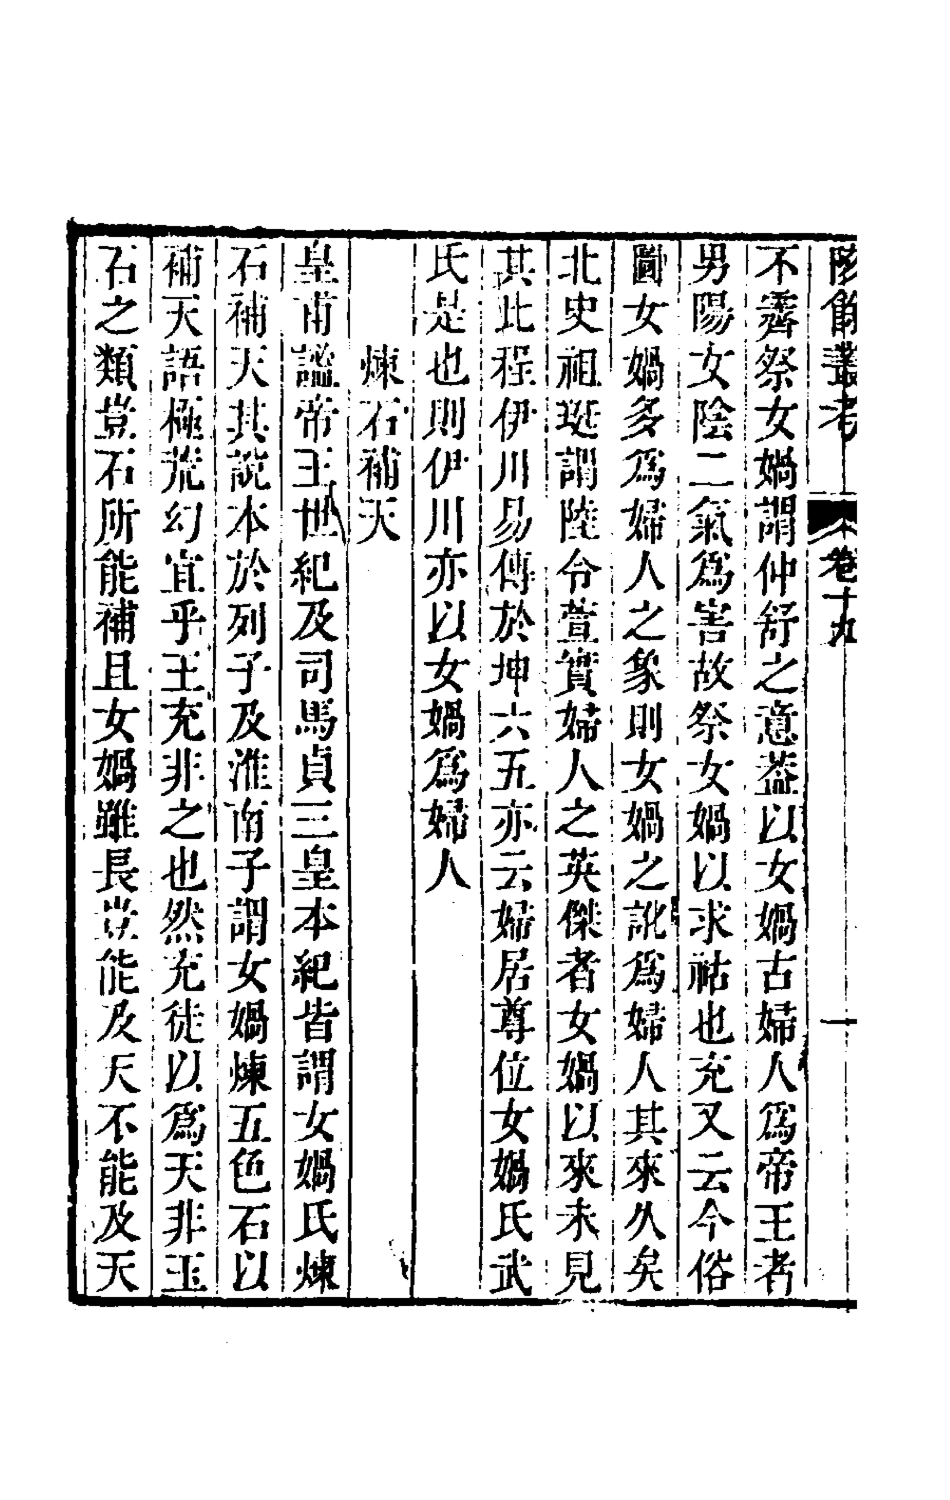 陔餘叢考 卷十九 一
不霽祭女媧謂仲舒之意葢以女媧古婦人爲帝王者
男陽女陰二氣爲害故祭女媧以求祜也充又云今俗
圖女媧多爲婦人之象則女媧之訛爲婦人其來久矣
北史祖珽謂陸令萱實婦人之英傑者女媧以來未見
其此程伊川易傳於坤六五亦云婦居尊位女媧氏武
氏是也則伊川亦以女媧爲婦人
煉石補天
皇甫謐帝王世紀及司馬貞三皇本紀皆謂女媧氏煉
石補天其說本於列子及淮南子謂女媧煉五色石以
補天語極荒幻宜乎王充非之也然充徒以爲天非玉
石之類豈石所能補且女媧雖長豈能及天不能及天